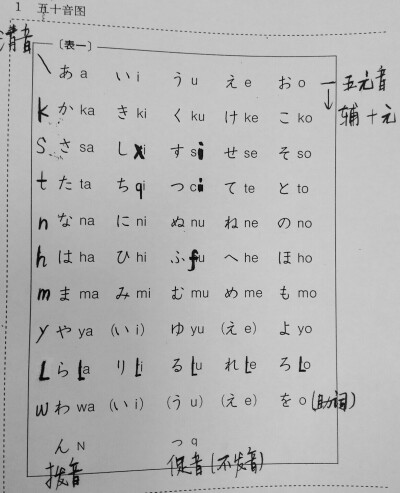 1 五十音图
清音
〔表一〕
\ あ a い i う u え e お o — 五元音
↓ 辅+元
k か ka き ki く ku け ke こ ko
s さ sa し xi す si せ se そ so
t た ta ち qi つ ci て te と to
n な na に ni ぬ nu ね ne の no
h は ha ひ hi ふ fu へ he ほ ho
m ま ma み mi む mu め me も mo
y や ya (い i) ゆ yu (え e) よ yo
L ら La り Li る Lu れ Le ろ Lo
w わ wa (い i) (う u) (え e) を o (助词)
ん N っ q
拨音 促音(不发音)